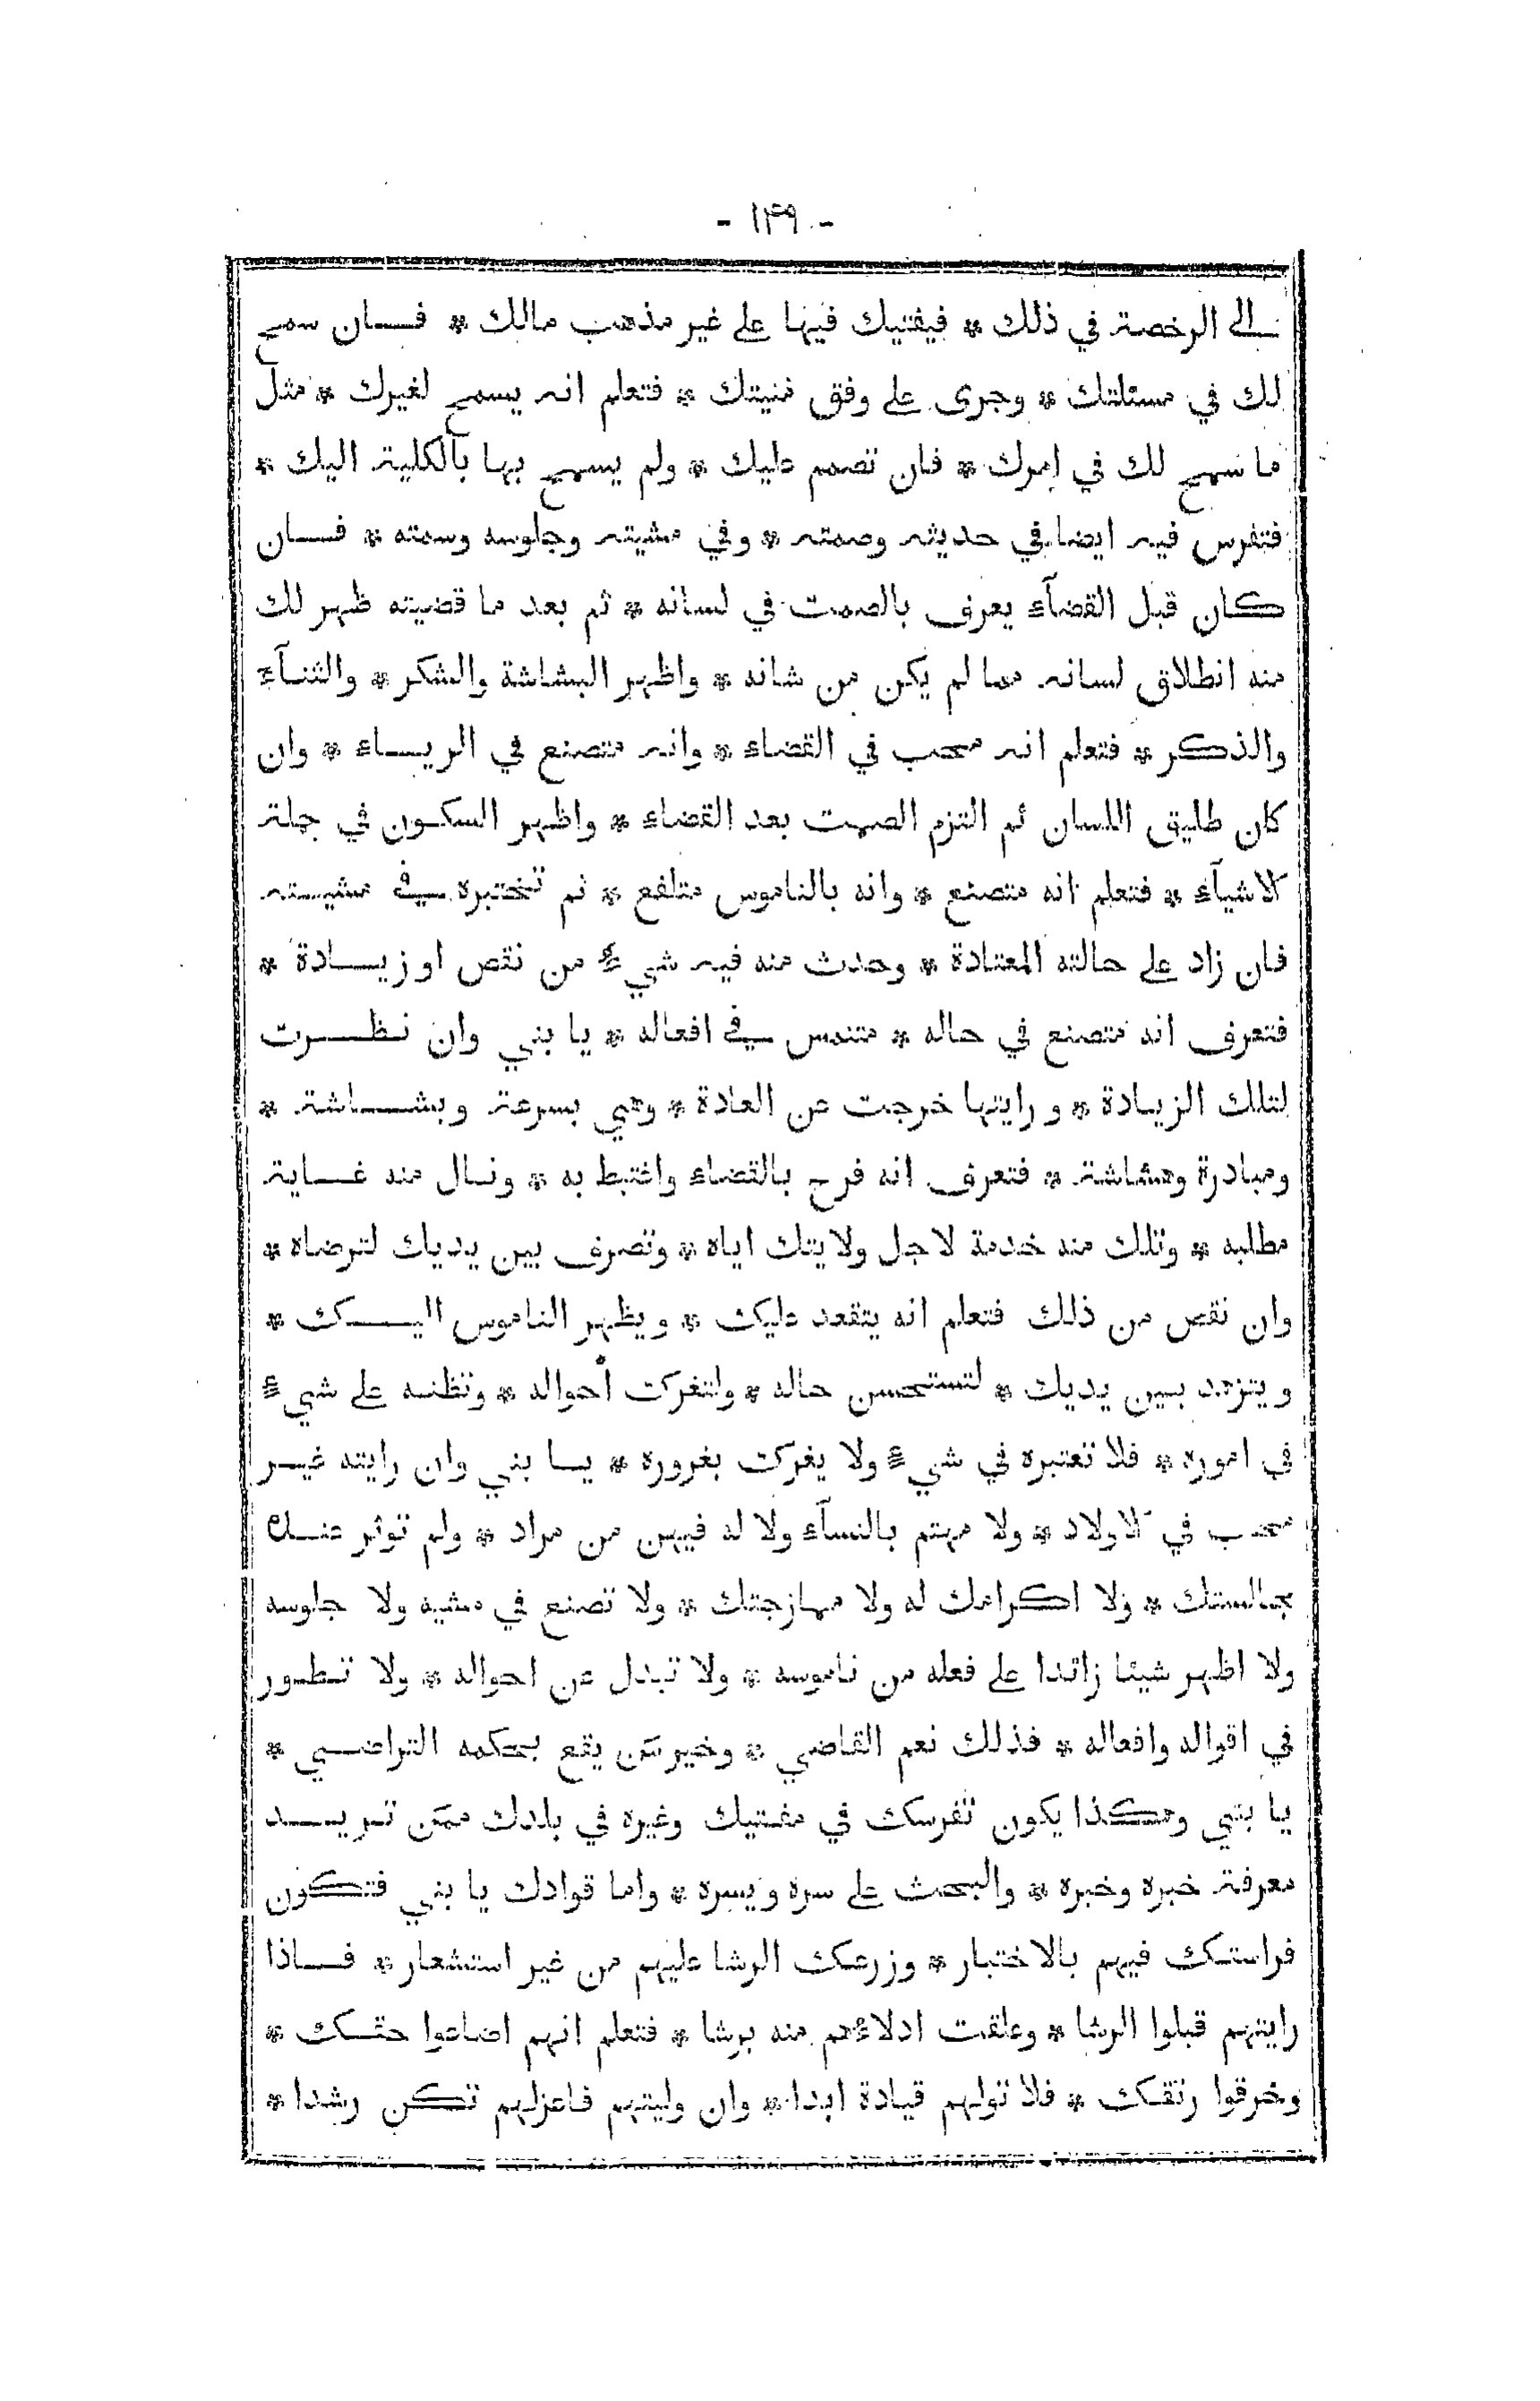 - ١٤٩ -
الى الرخصة في ذلك * فيفتيك فيها على غير مذهب مالك * فان سمح
لك في مسئلتك * وجرى على وفق منيتك * فتعلم انه يسمح لغيرك * مثل
ما سمح لك في امرك * فان تصمم عليك * ولم يسمح بها بالكلية اليك *
فتفرس فيه ايضا في حديثه وصمته * وفي مشيته وجلوسه وسمته * فان
كان قبل القضآء يعرف بالصمت في لسانه * ثم بعد ما قضيته ظهر لك
منه انطلاق لسانه مما لم يكن من شانه * واظهر البشاشة والشكر * والثنآء
والذكر * فتعلم انه محب في القضاء * وانه متصنع في الرياء * وان
كان طليق اللسان ثم التزم الصمت بعد القضاء * واظهر السكون في جملة
الاشيآء * فتعلم انه متصنع * وانه بالناموس متلفع * ثم تختبره في مشيته
فان زاد على حالته المعتادة * وحدث منه فيه شيء من نقص او زيادة *
فتعرف انه متصنع في حاله * متندس في افعاله * يا بني وان نظرت
لتلك الزيادة * ورايتها خرجت عن العادة * وهي بسرعة وبشاشة *
ومبادرة وهشاشة * فتعرف انه فرح بالقضاء واغتبط به * ونال منه غاية
مطلبه * وتلك منه خدمة لاجل ولايتك اياه * وتصرف بين يديك لترضاه *
وان نقص من ذلك فتعلم انه يتقعد عليك * ويظهر الناموس اليك *
ويتزهد بين يديك * لتستحسن حاله * ولتغرك أحواله * وتظنه على شيء
في اموره * فلا تعتبره في شيء ولا يغرك بغروره * يا بني وان رايته غير
محب في الاولاد * ولا مهتم بالنسآء ولا له فيهن من مراد * ولم توثر عنك
مجالستك * ولا اكرامك له ولا ممازجتك * ولا تصنع في مشيه ولا جلوسه
ولا اظهر شيئا زائدا على فعله من ناموسه * ولا تبدل عن احواله * ولا تطور
في اقواله وافعاله * فذلك نعم القاضي * وخير من يقع بحكمه التراضي *
يا بني وهكذا يكون تفرسك في مفتيك وغيره في بلدك ممن تريد
معرفة خبره وخبره * والبحث على سره ويسره * واما قوادك يا بني فتكون
فراستك فيهم بالاختبار * وزرعك الرشا عليهم من غير استشعار * فاذا
رايتهم قبلوا الرشا * وعلقت ادلاءهم منه برشا * فتعلم انهم اضاعوا حقك *
وخرقوا رتقك * فلا تولهم قيادة ابدا * وان وليتهم فاعزلهم تكن رشدا *